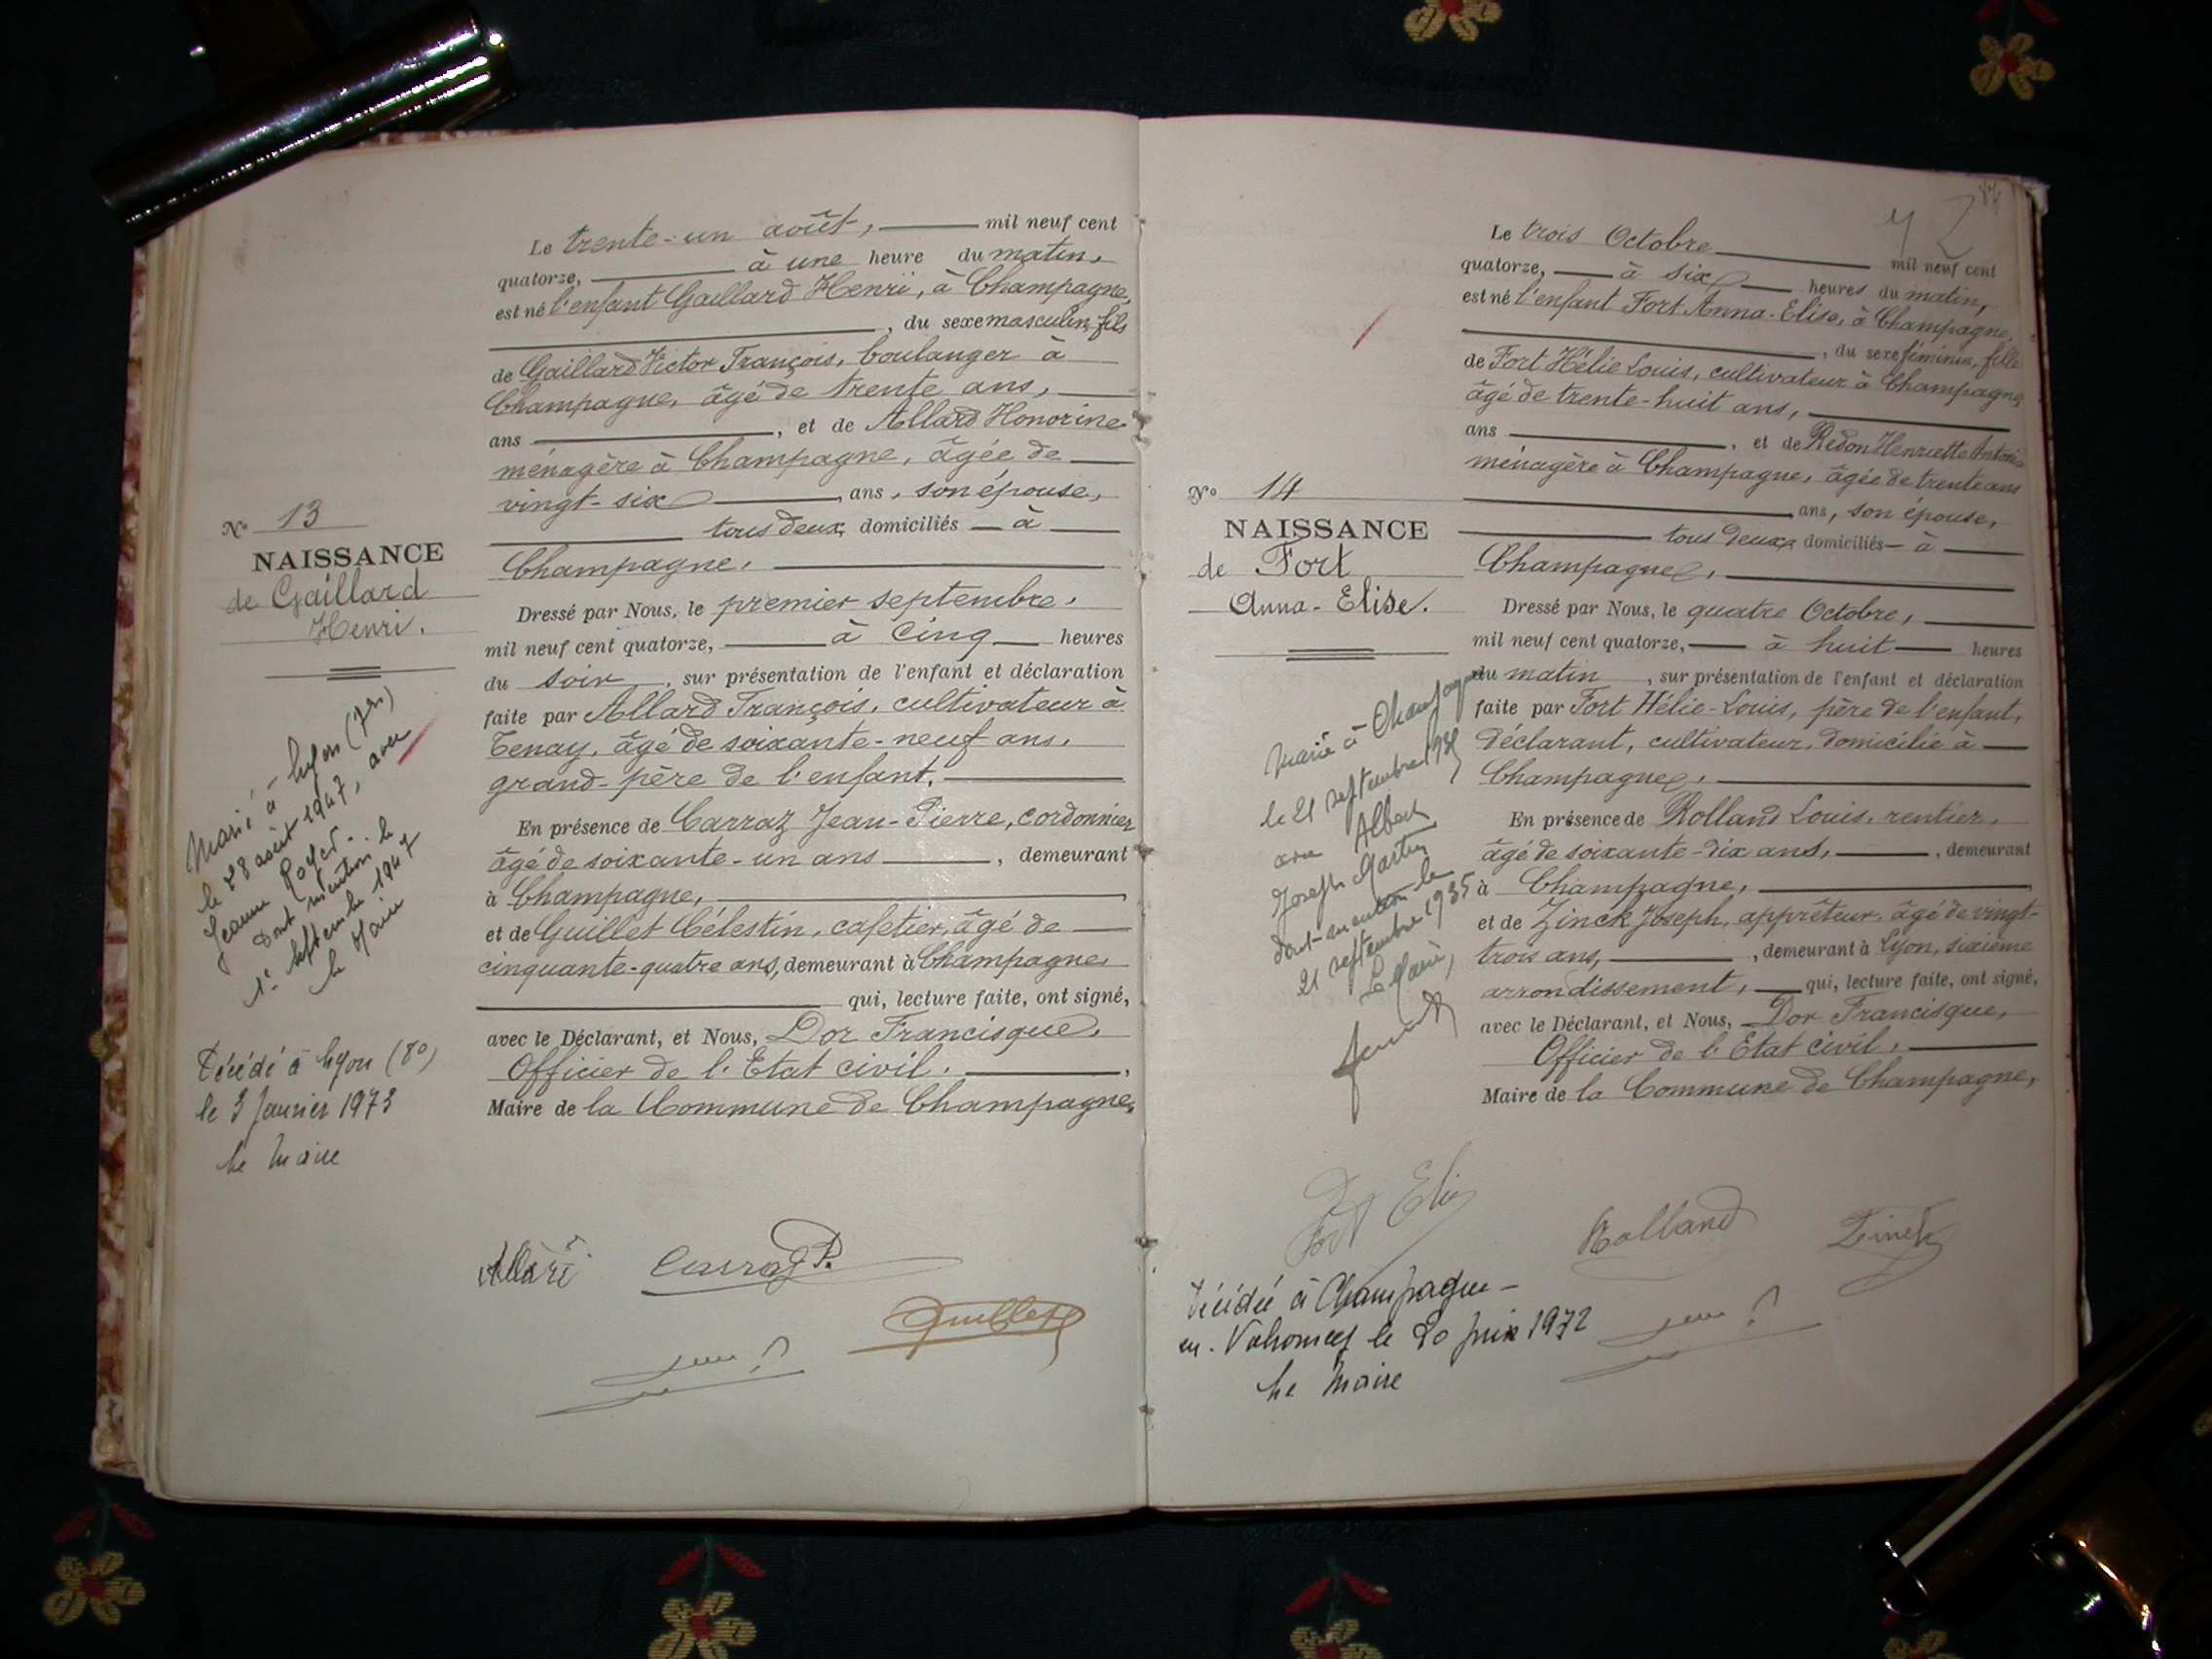 Le trente-un août, mil neuf cent
quatorze, à une heure du matin,
est né l'enfant Gaillard Henri, à Champagne,
, du sexe masculin, fils
de Gaillard Victor François, boulanger à
Champagne, âgé de trente ans,
ans , et de Allard Honorine
ménagère à Champagne, âgée de
vingt-six , ans, son épouse,
tous deux domiciliés à
Champagne.
Dressé par Nous, le premier septembre,
mil neuf cent quatorze, à cinq heures
du soir, sur présentation de l'enfant et déclaration
faite par Allard François, cultivateur à
Tenay, âgé de soixante-neuf ans,
grand-père de l'enfant.
En présence de Carraz Jean-Pierre, cordonnier
âgé de soixante-un ans , demeurant
à Champagne,
et de Guillet Célestin, cafetier, âgé de
cinquante-quatre ans, demeurant à Champagne,
qui, lecture faite, ont signé,
avec le Déclarant, et Nous, Dor Francisque,
Officier de l'Etat civil.
Maire de la Commune de Champagne,
N° 13
NAISSANCE
de Gaillard
Henri.
Marié à Lyon
le 28 août 1947, avec
Jeanne
Dont mention le
1er septembre 1947
Le Maire
Décédé à Lyon (8°)
le 3 Janvier 1973
Le Maire
Allard
Carraz P.
Guillet
72
Le trois Octobre mil neuf cent
quatorze, à six heures du matin,
est né l'enfant Fort Anna-Elise, à Champagne,
, du sexe féminin, fille
de Fort Hélie Louis, cultivateur à Champagne
âgé de trente-huit ans,
ans , et de Redon Henriette
ménagère à Champagne, âgée de trente ans
ans, son épouse,
tous deux domiciliés à
Champagne,
Dressé par Nous, le quatre Octobre,
mil neuf cent quatorze, à huit heures
du matin , sur présentation de l'enfant et déclaration
faite par Fort Hélie-Louis, père de l'enfant,
déclarant, cultivateur, domicilié à
Champagne,
En présence de Rolland Louis, rentier,
âgé de soixante-dix ans, , demeurant
à Champagne,
et de Zinck Joseph, apprêteur, âgé de vingt-
trois ans, , demeurant à Lyon, sixième
arrondissement, qui, lecture faite, ont signé,
avec le Déclarant, et Nous, Dor Francisque,
Officier de l'Etat civil,
Maire de la Commune de Champagne,
N° 14
NAISSANCE
de Fort
Anna-Elise.
Marié à Champagne
le 21 septembre 1935
avec Albert
Joseph Martin
dont mention le
21 septembre 1935
Le Maire,
Fort Elie
Rolland
Zinck
Décédée à Champagne-
en-Valromey le 20 juin 1972
Le Maire